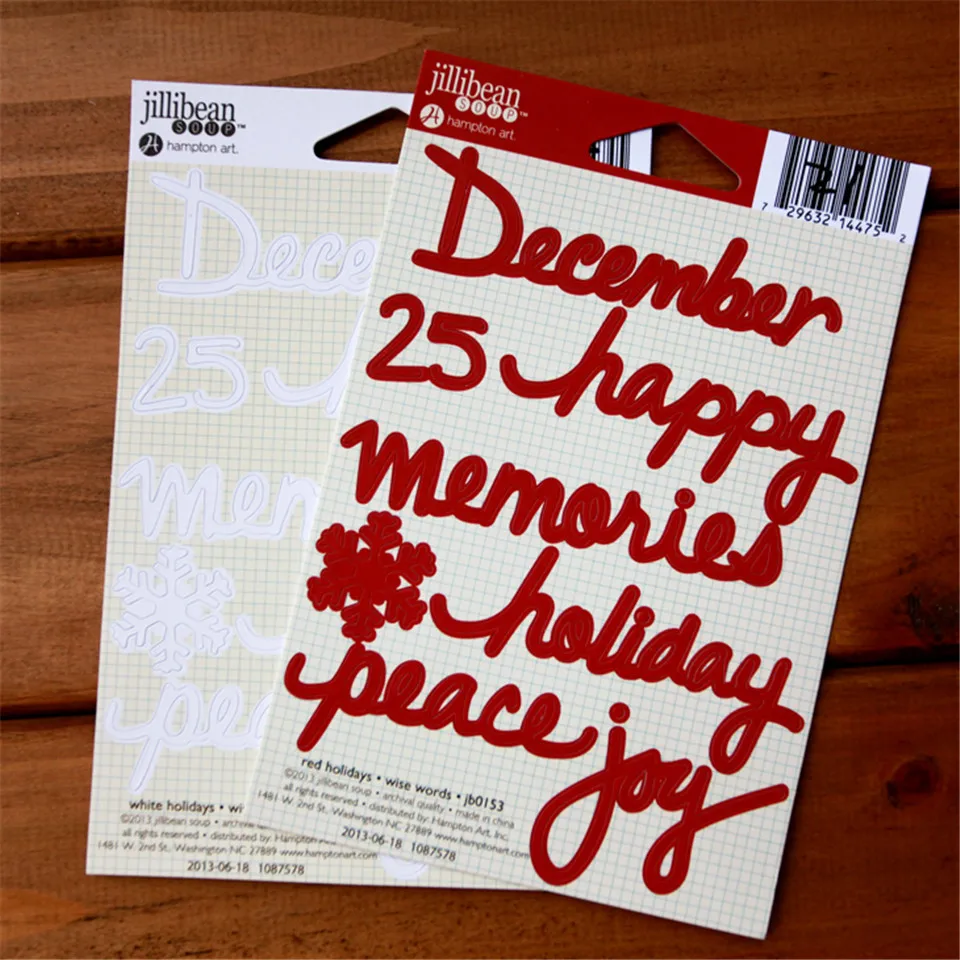 jillibean
SOUP™
hampton art.
Dece
25
mem
pea
white holidays • wi
©2013 jillibean soup • archival
all rights reserved • distributed by: Hampton
1481 W. 2nd St., Washington NC 27889 www.hamptonart.com
2013-06-18 1087578
jillibean
SOUP™
hampton art.
21
7 29632 14475 2
December
25 happy
memories
holiday
peace joy
red holidays • wise words • jb0153
©2013 jillibean soup • archival quality • made in china
all rights reserved • distributed by: Hampton Art, Inc.
1481 W. 2nd St., Washington NC 27889 www.hamptonart.com
2013-06-18 1087578